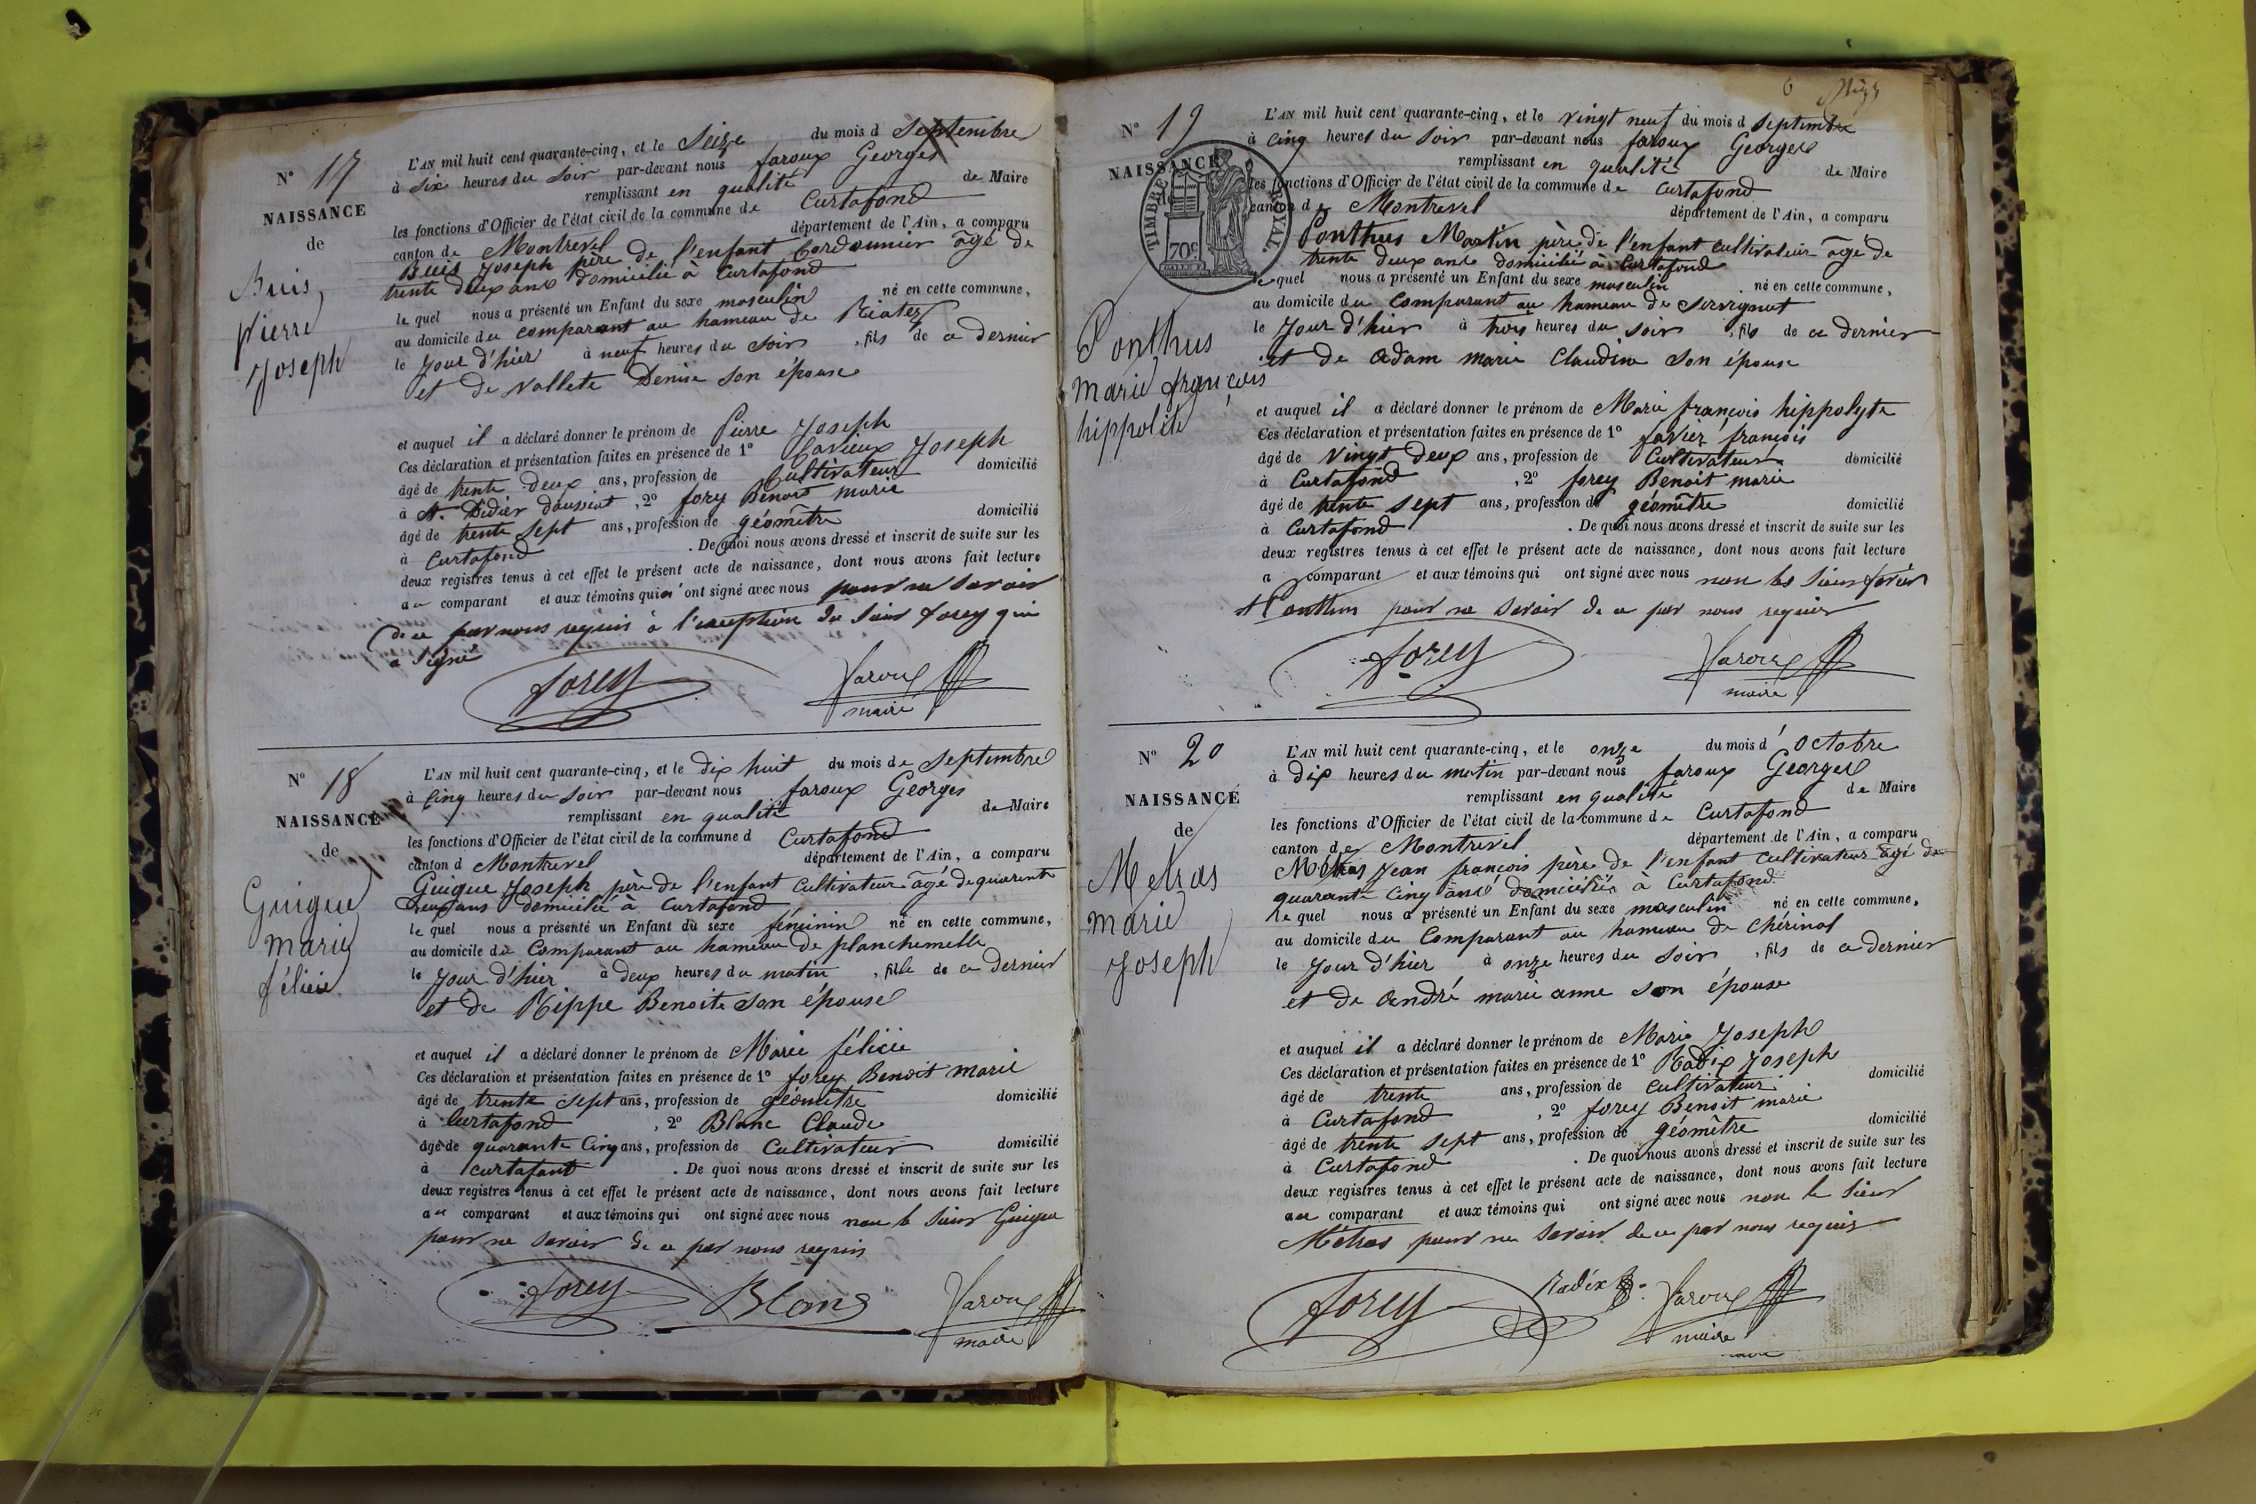 N° 17
NAISSANCE
de
Buis
pierre
Joseph
L'AN mil huit cent quarante-cinq, et le Seize du mois d Septembre
à six heures du soir par-devant nous faroux Georges
remplissant en qualité de Maire
les fonctions d'Officier de l'état civil de la commune de Curtafond
canton de Montrevel département de l'Ain, a comparu
Buis Joseph père de l'enfant Cordonnier âgé de
trente deux ans domicilié à Curtafond
le quel nous a présenté un Enfant du sexe masculin né en cette commune,
au domicile du comparant au hameau de
le Jour d'hier à neuf heures du soir, fils de ce dernier
et de vallete Denise son épouse
et auquel il a déclaré donner le prénom de Pierre Joseph
Ces déclaration et présentation faites en présence de 1° Joseph
âgé de trente deux ans, profession de Cultivateur domicilié
à St. Didier d'aussiat, 2° forey Benoit marie
âgé de trente sept ans, profession de géomètre domicilié
à Curtafond. De quoi nous avons dressé et inscrit de suite sur les
deux registres tenus à cet effet le présent acte de naissance, dont nous avons fait lecture
au comparant et aux témoins qui n'ont signé avec nous pour ne savoir
de ce par nous requis à l'exception du sieur forey qui
a signé
forey faroux
maire
N° 18
NAISSANCE
de
Guigue
marie
félicie
L'AN mil huit cent quarante-cinq, et le dix huit du mois de septembre
à cinq heures du soir par-devant nous faroux Georges
remplissant en qualité de Maire
les fonctions d'Officier de l'état civil de la commune d Curtafond
canton d Montrevel département de l'Ain, a comparu
Guigue Joseph père de l'enfant cultivateur âgé de quarante
ans domicilié à Curtafond
le quel nous a présenté un Enfant du sexe féminin né en cette commune,
au domicile du Comparant au hameau de planchemelle
le Jour d'hier à deux heures du matin, fille de ce dernier
et de Rippe Benoite son épouse
et auquel il a déclaré donner le prénom de Marie félicie
Ces déclaration et présentation faites en présence de 1° forey Benoit marie
âgé de trente sept ans, profession de géomètre domicilié
à Curtafond, 2° Blanc Claude
âgé de quarante Cinq ans, profession de Cultivateur domicilié
à curtafont. De quoi nous avons dressé et inscrit de suite sur les
deux registres tenus à cet effet le présent acte de naissance, dont nous avons fait lecture
au comparant et aux témoins qui ont signé avec nous non le sieur Guigue
pour ne savoir de ce par nous requis
forey Blanc faroux
maire
6
N° 19
NAISSANCE
TIMBRE ROYAL
70c
Ponthus
marie françois
hippolite
L'AN mil huit cent quarante-cinq, et le vingt neuf du mois d septembre
à cinq heures du soir par-devant nous faroux Georges
remplissant en qualité de Maire
les fonctions d'Officier de l'état civil de la commune de Curtafond
canton de Montrevel département de l'Ain, a comparu
Ponthus Martin père de l'enfant cultivateur âgé de
trente deux ans domicilié à Curtafond
le quel nous a présenté un Enfant du sexe masculin né en cette commune,
au domicile du comparant au hameau de
le Jour d'hier à trois heures du soir, fils de ce dernier
et de adam marie Claudine son épouse
et auquel il a déclaré donner le prénom de Marie françois hippolyte
Ces déclaration et présentation faites en présence de 1° françois
âgé de vingt deux ans, profession de Cultivateur domicilié
à Curtafond, 2° forey Benoit marie
âgé de trente sept ans, profession de géomètre domicilié
à Curtafond. De quoi nous avons dressé et inscrit de suite sur les
deux registres tenus à cet effet le présent acte de naissance, dont nous avons fait lecture
a comparant et aux témoins qui ont signé avec nous non les sieurs
et Ponthus pour ne savoir de ce par nous requis
forey faroux
maire
N° 20
NAISSANCE
de
Metras
marie
Joseph
L'AN mil huit cent quarante-cinq, et le onze du mois d'octobre
à dix heures du matin par-devant nous faroux Georges
remplissant en qualité de Maire
les fonctions d'Officier de l'état civil de la commune de Curtafond
canton de Montrevel département de l'Ain, a comparu
Métras Jean françois père de l'enfant cultivateur âgé de
quarante cinq ans domicilié à Curtafond
le quel nous a présenté un Enfant du sexe masculin né en cette commune,
au domicile du Comparant au hameau de chérinal
le Jour d'hier à onze heures du soir, fils de ce dernier
et de andré marie anne son épouse
et auquel il a déclaré donner le prénom de Marie Joseph
Ces déclaration et présentation faites en présence de 1° Radix Joseph
âgé de trente ans, profession de cultivateur domicilié
à Curtafond, 2° forey Benoit marie
âgé de trente sept ans, profession de géomètre domicilié
à Curtafond. De quoi nous avons dressé et inscrit de suite sur les
deux registres tenus à cet effet le présent acte de naissance, dont nous avons fait lecture
au comparant et aux témoins qui ont signé avec nous non le sieur
Métras pour ne savoir de ce par nous requis
forey Radix faroux
maire